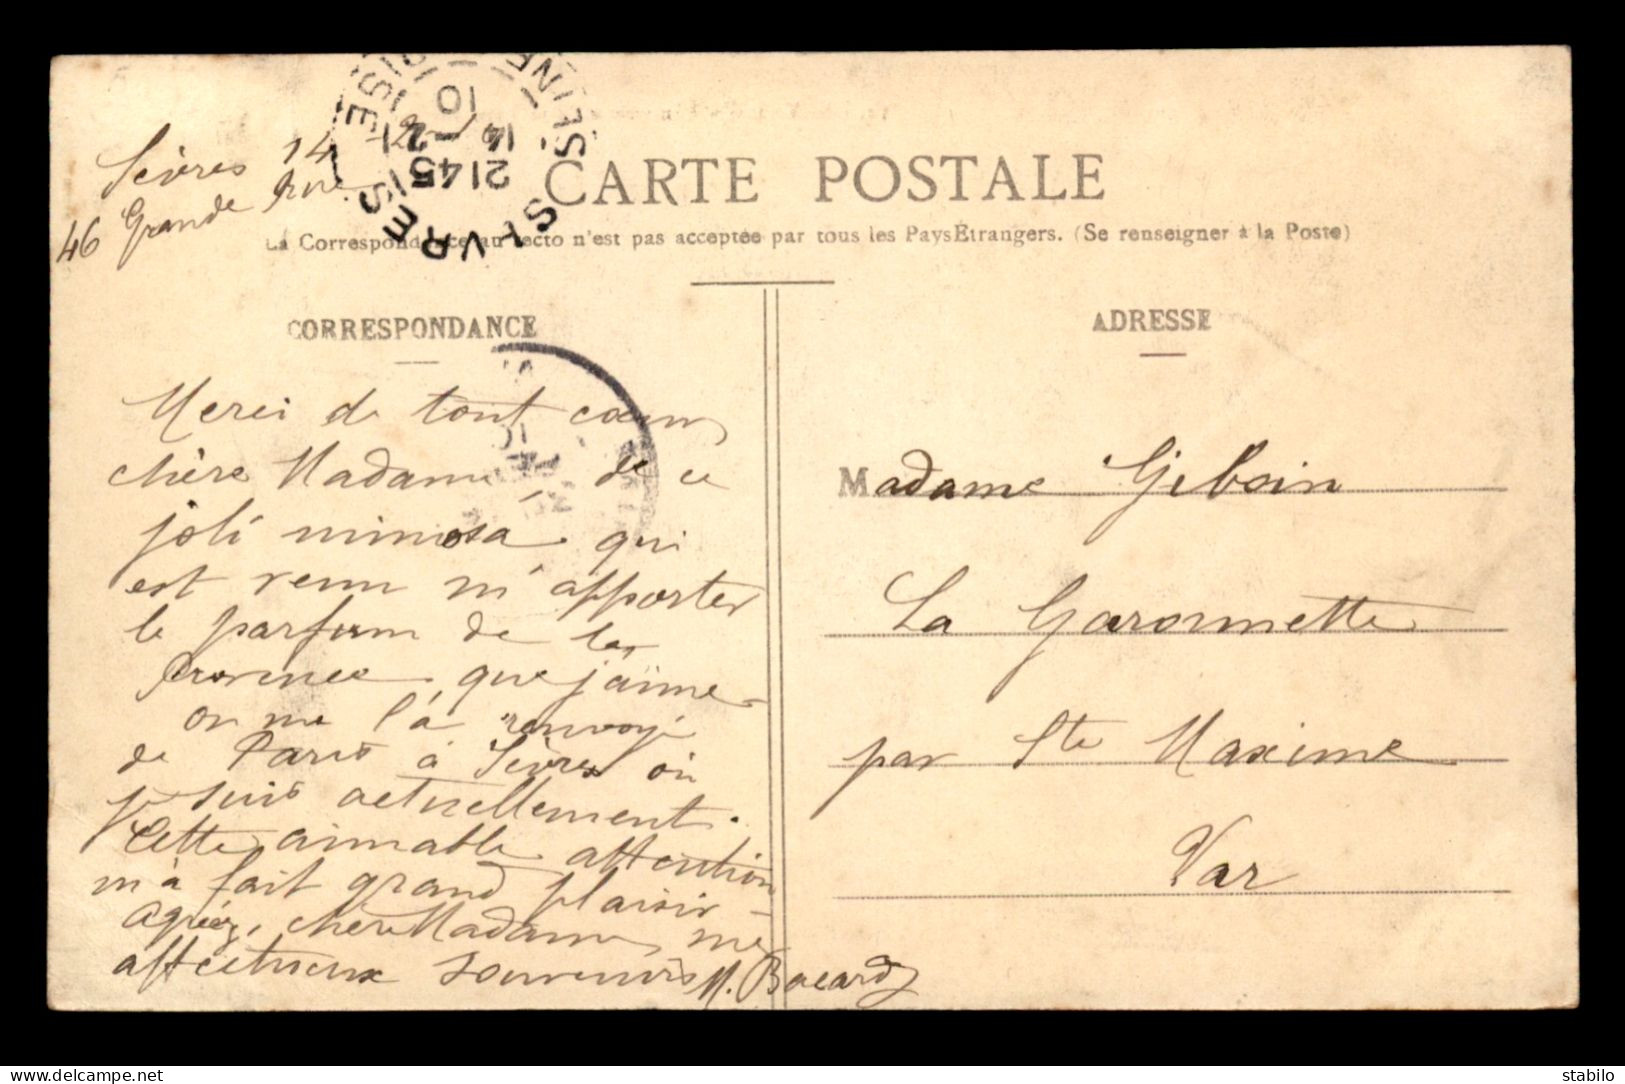 Sèvres 14
46 Grande Rue
SEVRES
SEINE
OISE
10
14 2
2145
CARTE POSTALE
La Correspondance au recto n'est pas acceptée par tous les Pays Étrangers. (Se renseigner à la Poste)
CORRESPONDANCE
Merci de tout cœur,
chère Madame, de ce
joli mimosa qui
est venu m'apporter
le parfum de la
Provence que j'aime -
on me l'a renvoyé
de Paris à Sèvres où
je suis actuellement.
Cette aimable attention
m'a fait grand plaisir -
Agréez, chère Madame, mes
affectueux souvenirs
M. Bacard
ADRESSE
Madame
La Garonnette
par Ste Maxime
Var
stabilo